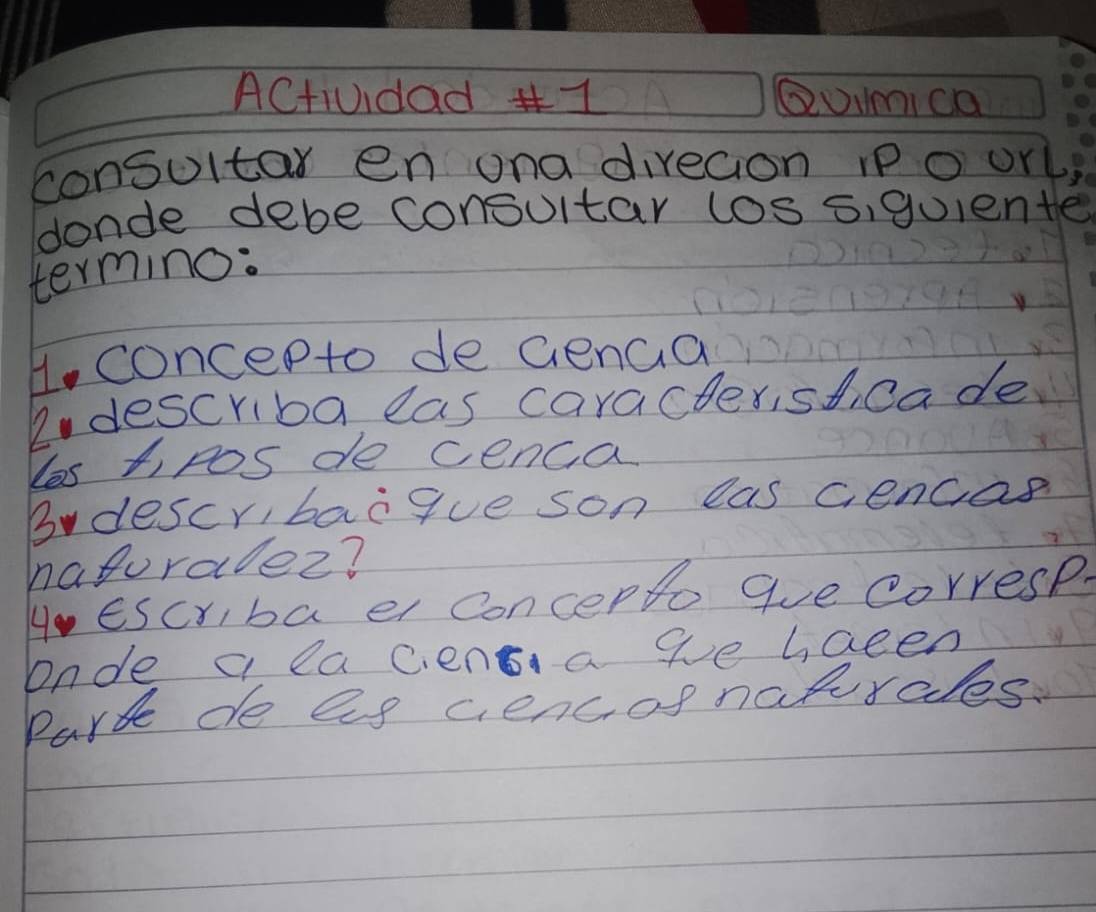 Actividad #1 Quimica
consultar en una direcion iP o url;
donde debe consultar los siguiente
termino:
1. concepto de ciencia
2. describa las caracteristica de
los tipos de cenca
3. describa ¿que son las ciencias
naturalez?
4. Escriba el concepto que corresp-
onde a la ciensia que haeen
parte de las ciencias naturales.